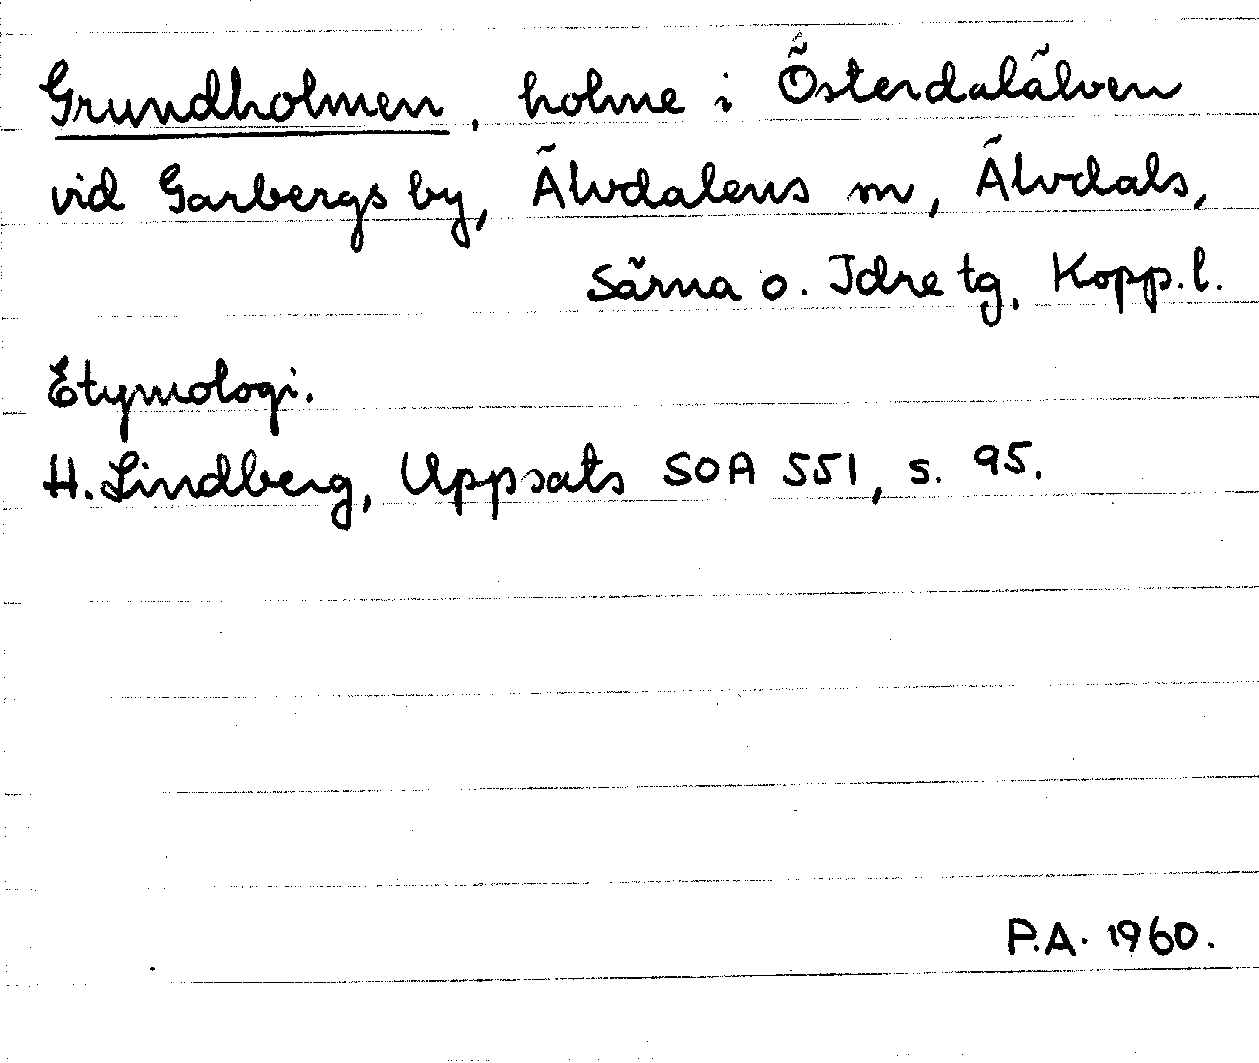 Grundholmen, holme i Österdalälven
vid Garbergs by, Älvdalens sn, Älvdals,
Särna o. Idre tg, Kopp.l.
Etymologi.
H. Lindberg, Uppsats SOA 551, s. 95.
P.A. 1960.